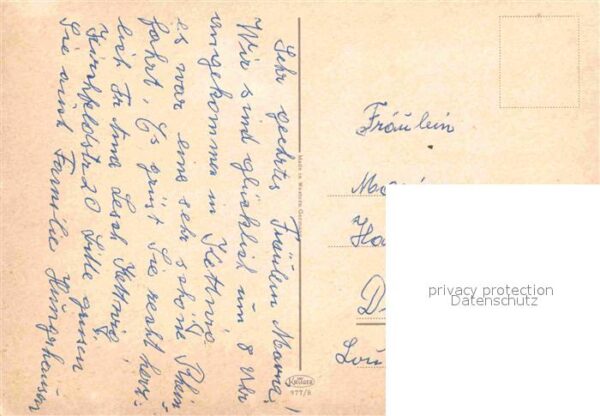 Sehr geehrtes Fräulein Marne!
Wir sind glücklich um 8 Uhr
angekommen in Kettwig
es war eine sehr schöne Rhein
fahrt. Es grüst Sie recht herz-
lich Fr Anna Lesch Kettwig,
Kirchfeldstr 20 Bitte grüsen
Sie auch Familie
Made in Western Germany
Krüger
977/8
Fräulein
privacy protection
Datenschutz